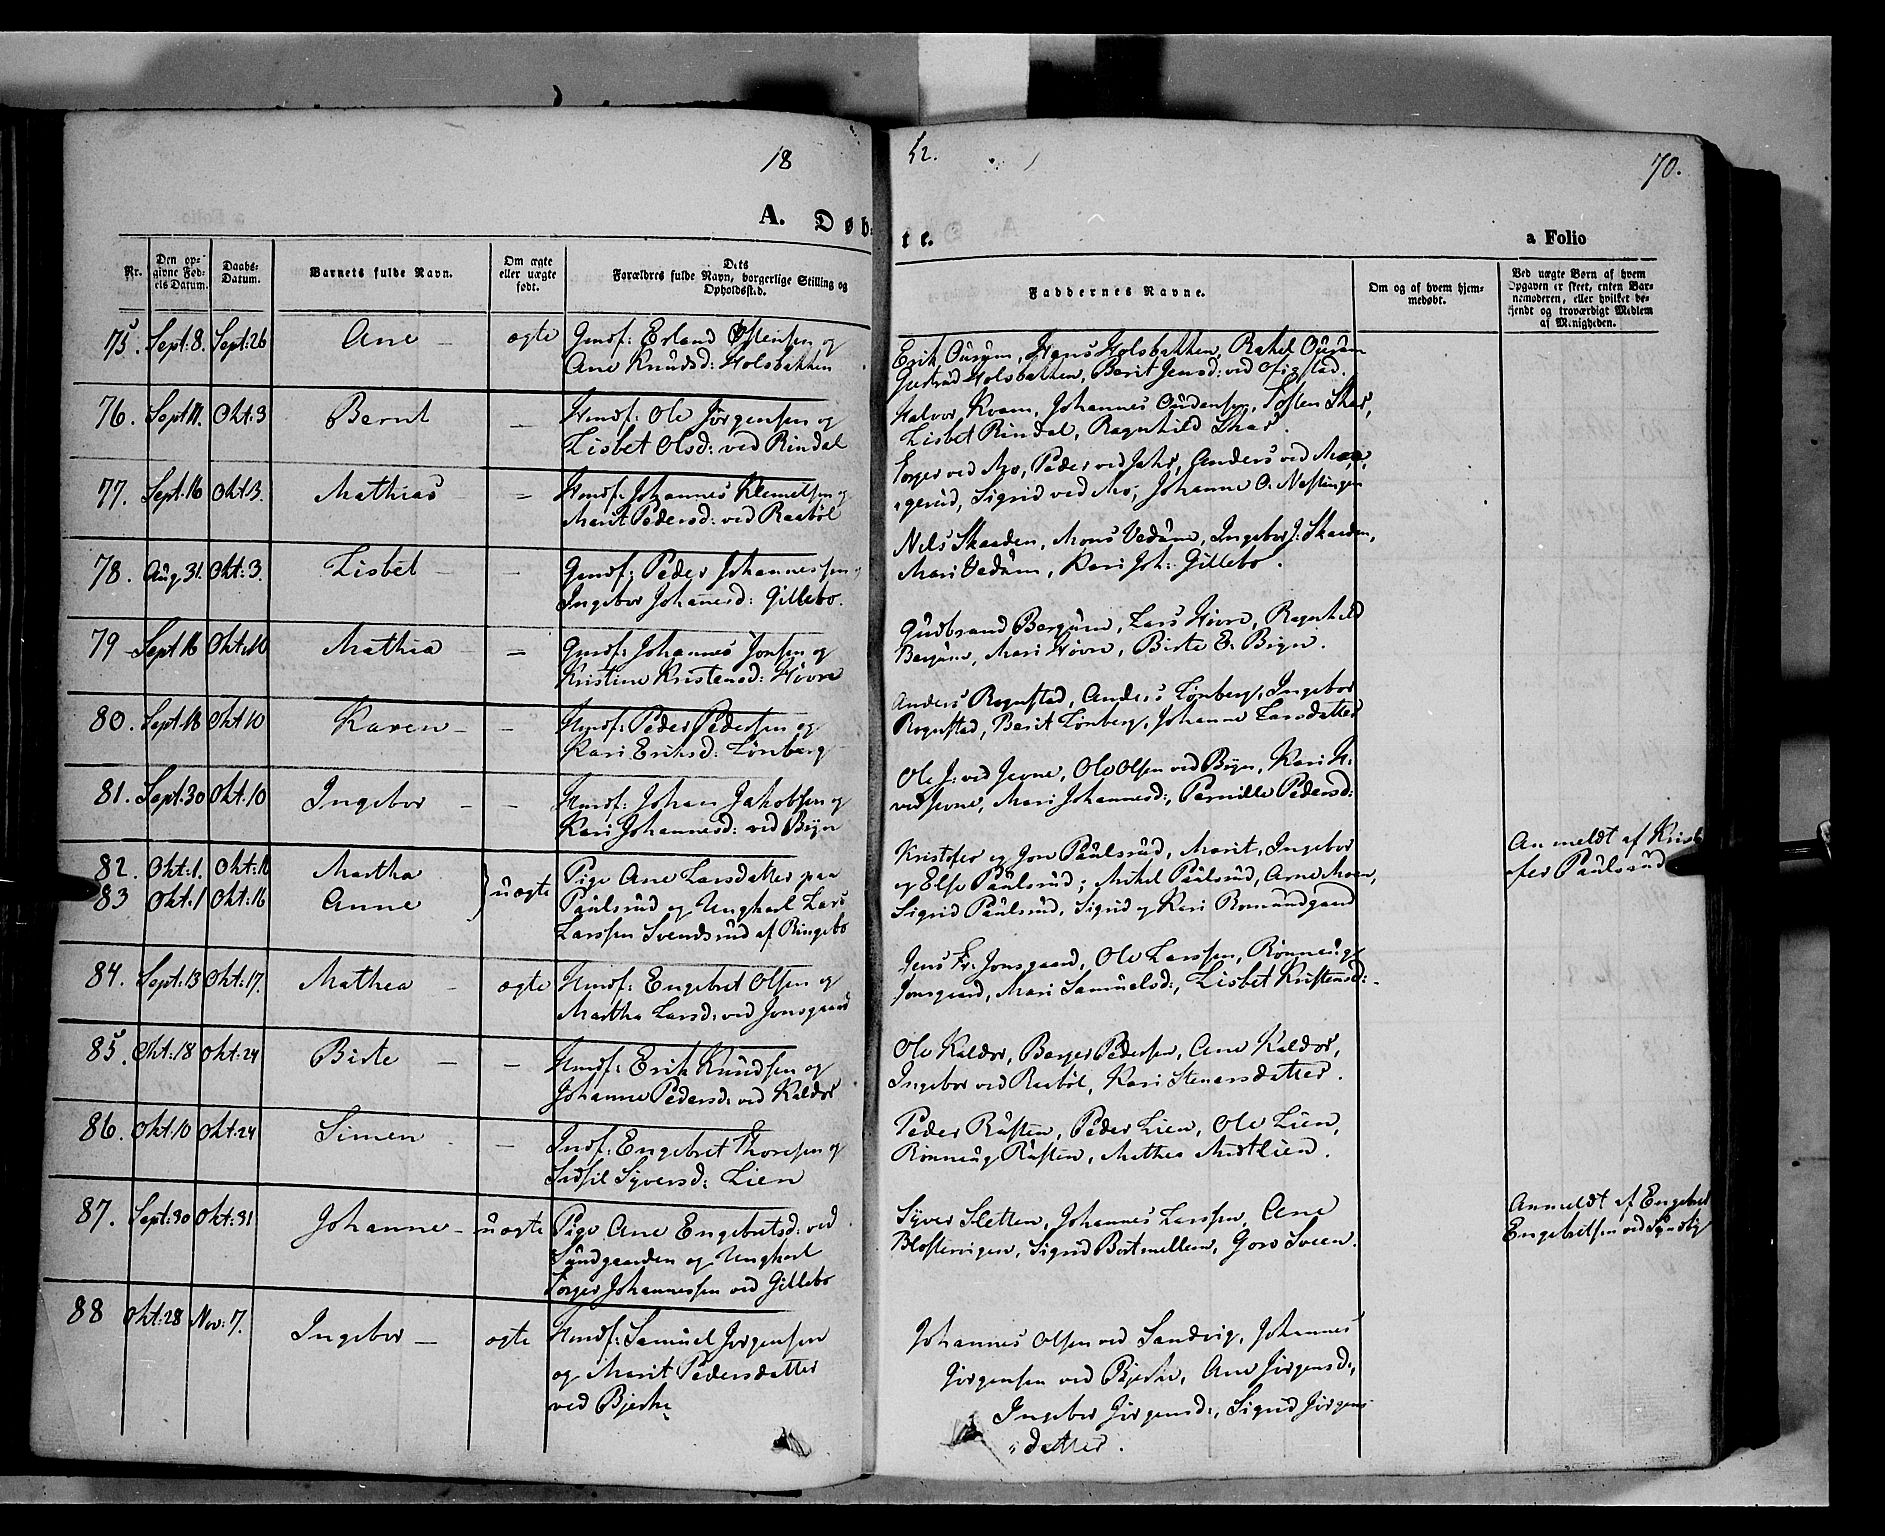 18
52.
70.
A. Døb-
te.
a Folio
Nr.
Den op-
givne Fød-
els Datum.
Daabs-
Datum.
Barnets fulde Navn.
Om ægte
eller uægte
født.
Dets
Forældres fulde Navn, borgerlige Stilling og
Opholdssted.
Faddernes Navne.
Om og af hvem hjem-
medøbt.
Ved uægte Børn af hvem
Opgaven er skeet, enten Bar-
nemoderen, eller hvilket be-
kjendt og troværdigt Medlem
af Menigheden.
75. Sept: 8. Sept: 26 Ane – ægte Gmdf: Erland Ostensen og
Ane Knudsd: Holsbakken
Erik Hans Holsbakken, Rakel
Holsbakken, Berit Jensd: ved
76. Sept 11. Okt: 3 Bernt – Hmdf: Ole Jørgensen og
Lisbet Olsd: ved Rindal
Halvor Kvam, Johannes Tosten Skar,
Lisbet Rindal, Ragnhild Skar.
77. Sept: 16 Okt 3. Mathias – Hmdf: Johannes Klemetsen og
Marit Pedersd: ved Raabøl
Torger ved Mo, Peder ved Anders ved
Sigrid ved Mo, Johanne O.
78. Aug 31. Okt: 3. Lisbet – – Gmdf: Peder Johannessen og
Ingebor Johanesd: Gillebo.
Nels Skaaden, Mons Vedum, Ingebor J: Skaaden,
Mari Vedum, Kari Joh: Gillebo.
79 Sept 16 Okt: 10 Mathea – Gmdf: Johannes Jonsen og
Kristine Kristensd: Hovre
Gudbrand Bergum, Lars Hovre, Ragnhild
Bergum, Mari Hovre, Birte E. Bign.
80. Sept: 18 Okt 10 Karen – – Hmdf: Peder Pedersen og
Kari Eriksd: Lønberg
Anders Rognstad, Anders Lønberg, Ingebor
Rognstad, Berit Lønberg, Johanne Larsdatter
81. Sept: 30 Okt: 10 Ingebor – – Hmdf: Johan Jakobsen og
Kari Johannesd: ved Bign
Ole J: ved Jevne, Ole Olsen ved Bign, Kari H:
ved Jevne, Mari Johannesd:, Pernille Pedersd:
82. Okt: 1. Okt: 16 Martha
83 Okt: 1 Okt: 16 Anne
uægte
Pige Ane Larsdatter paa
Paulsrud og Ungkarl Lars
Larssen Svendsrud af Ringebo
Kristofer og Jon Paulsrud, Marit, Ingebor
og Else Paulsrud; Mikel Paulsrud, Arne Moen,
Sigrid Paulsrud, Sigrid og Kari Romundgaard
Anmeldt af Krist
ofer Paulsrud
84. Sept: 13 Okt: 17. Mathea – ægte Hmdf: Engebret Olsen og
Martha Larsd: ved Jonsgaard
Jens Fr: Jonsgaard, Ole Larssen, Rønnaug
Jonsgaard, Mari Samuelsd:, Lisbet Kristensd:
85. Okt: 18 Okt: 24 Birte – – Hmdf: Erik Knudsen og
Johanne Pedersd: ved Kaldor
Ole Kaldor, Berger Pedersen, Ane Kaldor,
Ingebor ved Raabøl, Kari Stenersdatter.
86. Okt: 10 Okt: 24 Simen – Indf: Engebret Thoresen og
Sidsil Syversd: Lien
Peder Rusten, Peder Lien, Ole Lien,
Rønnaug Rusten, Mathea Midtlien.
87. Sept: 30 Okt: 31 Johanne – uægte Pige Ane Engebretsd: ved
Sundgaarden og Ungkarl
Torger Johannessen ved Gillebo
Syver Sletten, Johannes Larssen, Ane
Sigrid Goro Sveen.
Anmeldt af Engebret
Engebretsen ved
88 Okt: 28 Nov: 7. Ingebor – ægte Hmdf: Samuel Jørgensen
og Marit Pedersdatter
ved Bjerke
Johannes Olsen ved Sandvig, Johannes
Jørgensen ved Bjerke, Ane Jørgensd:,
Ingebor Jørgensd:, Sigrid Jørgens
datter.